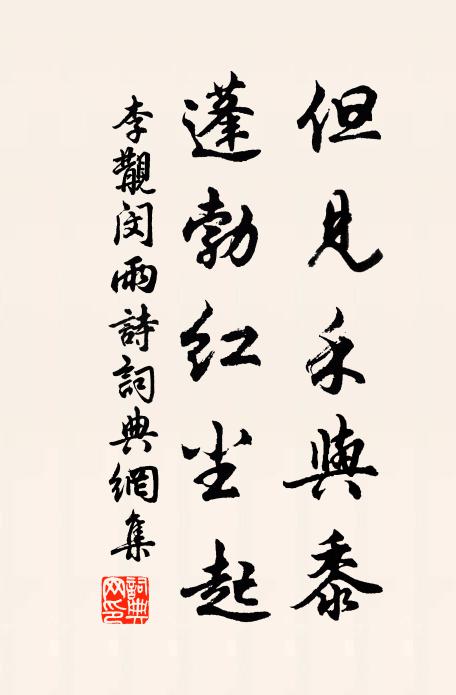 但見禾與黍
蓬勃紅尘起
李覯閔雨詩詞典網集
詞典網印